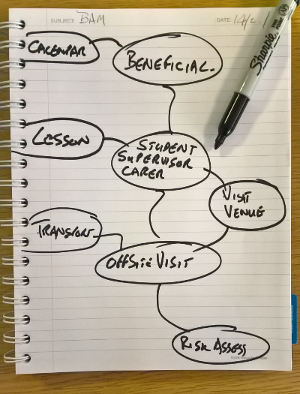 SUBJECT: BAM
DATE:
CALENDAR
BENEFICIAL.
LESSON
STUDENT
SUPERVISOR
CARER
VISIT
VENUE
TRANSPORT
OFFSITE VISIT
RISK ASSESS
Sharpie